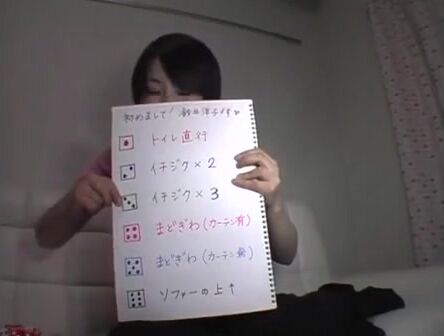 初めまして!
トイレ直行
イチジク×2
イチジク×3
まどぎわ(カーテン有)
まどぎわ(カーテン無)
ソファーの上↑